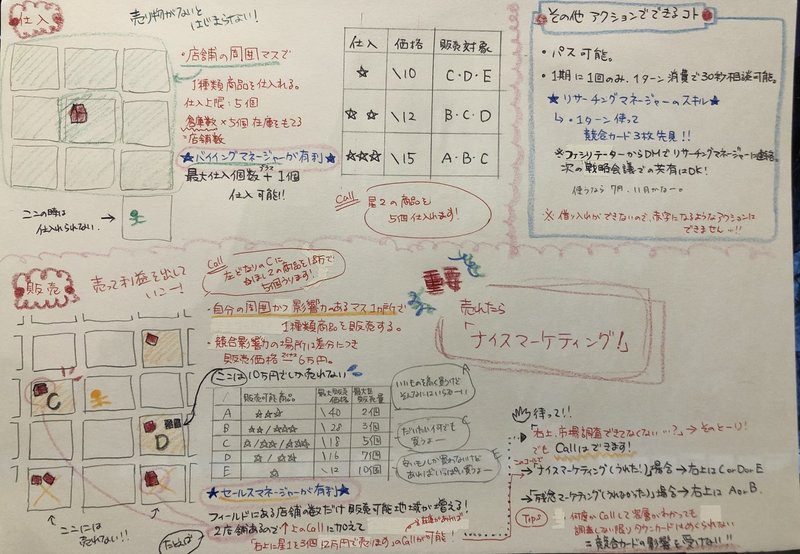 仕入
売り物がないと
はじまらない!
・店舗の周囲マスで
1種類商品を仕入れる。
仕入上限:5個
倉庫数×5個 在庫をもてる
・店舗数
★バイイングマネージャーが有利★
最大仕入個数+1個
プラス
仕入可能!!
ここの時は
仕入れられない。
仕入 価格 販売対象
☆ \10 C・D・E
☆☆ \12 B・C・D
☆☆☆ \15 A・B・C
Call
星2の商品を
5個仕入れます!
その他 アクションでできるコト
・パス可能。
・1期に1回のみ、1ターン消費で30秒相談可能。
★リサーチングマネージャーのスキル★
→・1ターン使って
競合カード3枚先見!!
※ファシリテーターからDMでリサーチングマネージャーに連絡
次の戦略会議での共有はOK!
使うなら 7月、11月かなー。
※借り入れができないので、赤字になるようなアクションは
できません…!!
販売
売って利益を出して
いこー!
Call
左どなりのCに
星2の商品を18万で
5個うります!
・自分の周囲かつ影響力のあるマス1ヵ所で
1種類商品を販売する。
・競合影響力の場所は差分につき
販売価格 6万円。
マイナス
ここは10万円でしか売れない
C
D
販売可能商品 最大販売価格 最大販売数量
A ☆☆☆ \40 2個
B ☆☆/☆☆☆ \28 3個
C ☆/☆☆/☆☆☆ \18 5個
D ☆/☆☆ \16 7個
E ☆ \12 10個
A
いいものを高く買うけど
そんなにはいらなーい
C
だいたい何でも
買うよー
E
安いものしか買わないけど
買うよー
★セールスマネージャーが有利★
フィールドにある店舗の数だけ 販売可能地域が増える!
2店舗あるので ↑上のCallに加えて
在庫があれば
「右上に星1を3個12万円で売ります」のCallが可能!
ここには
売れない!!
たとえば
重要
売れたら
「ナイスマーケティング!」
待って!!
「右上、市場調査できてなくない…?」→そのとーり!
でも Callはできます!
このコールで
「ナイスマーケティング(うれた!)」場合→右上は C or D or E
「残念マーケティング(うれなかった)」場合→右上は A or B.
Tips
何度かCallして答えがわかっても
調査しない限りタウンカードはめくられない
=競合カードの影響を受けない!!